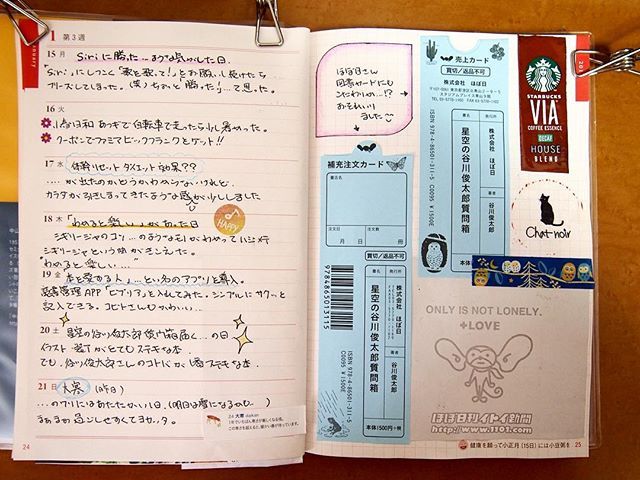 1 第3週
January
15 月 Siriに勝った…ような気がした日
「Siri」にしつこく「歌を歌って！」とお願いし続けたら
フリーズしてしまった。（笑）ちょっと「勝った！」って思った。
16 火
小春日和 あつぎで自転車で走ったら少し暑かった。
クーポンでファミマビックフランクをゲット!!
17 水 体幹リセットダイエット効果??
…が出たのかどうかわからないけれど
カラダがひきしまってきたような感が少ししました
18 木 「わかると楽しい」があった日
HAPPY
シギリージャのコン…のようなモノがわかってハジメテ
シギリージャという曲がきこえた。
"わかると楽しい"…
19 金 本を愛する人」…という名のアプリを導入。
読書管理APP「ビブリア」を入れてみた。シンプルにサクッと
記入できる。
20 土 星空の谷川俊太郎質問箱届く…の日
イラスト・装丁がとてもステキな本.
でも、谷川俊太郎さんのコトバが1番ステキな本.
21 日 大寒 (昨日)
…のワリにはあたたかい1日.
まぁまぁ過ごしやすくてヨカッタ。
24 大寒 daikan
24
ほぼ日さん
図書カードにも
こだわりの…!?
おそれいり
ました
補充注文カード
書店名
注文日
注文数
月 日
冊
貰切/返品不可
発行所
株式会社 ほぼ日
書名
星空の谷川俊太郎質問箱
著者
谷川俊太郎
ISBN 978-4-86501-311-5
C0095 ¥1500E
本体1500円+税
9784865013115
売上カード
貰切/返品不可
株式会社 ほぼ日
TEL 03-5770-1102 FAX 03-5770-1192
発行所
株式会社 ほぼ日
書名
星空の谷川俊太郎質問箱
著者
谷川俊太郎
ISBN 978-4-86501-311-5
C0095 ¥1500E
STARBUCKS
VIA
COFFEE ESSENCE
DECAF
HOUSE
BLEND
Chat noir
ONLY IS NOT LONELY.
+LOVE
ほぼ日刊イトイ新聞
http://www.1101.com
健康を願って小正月(15日)には小豆粥を
25